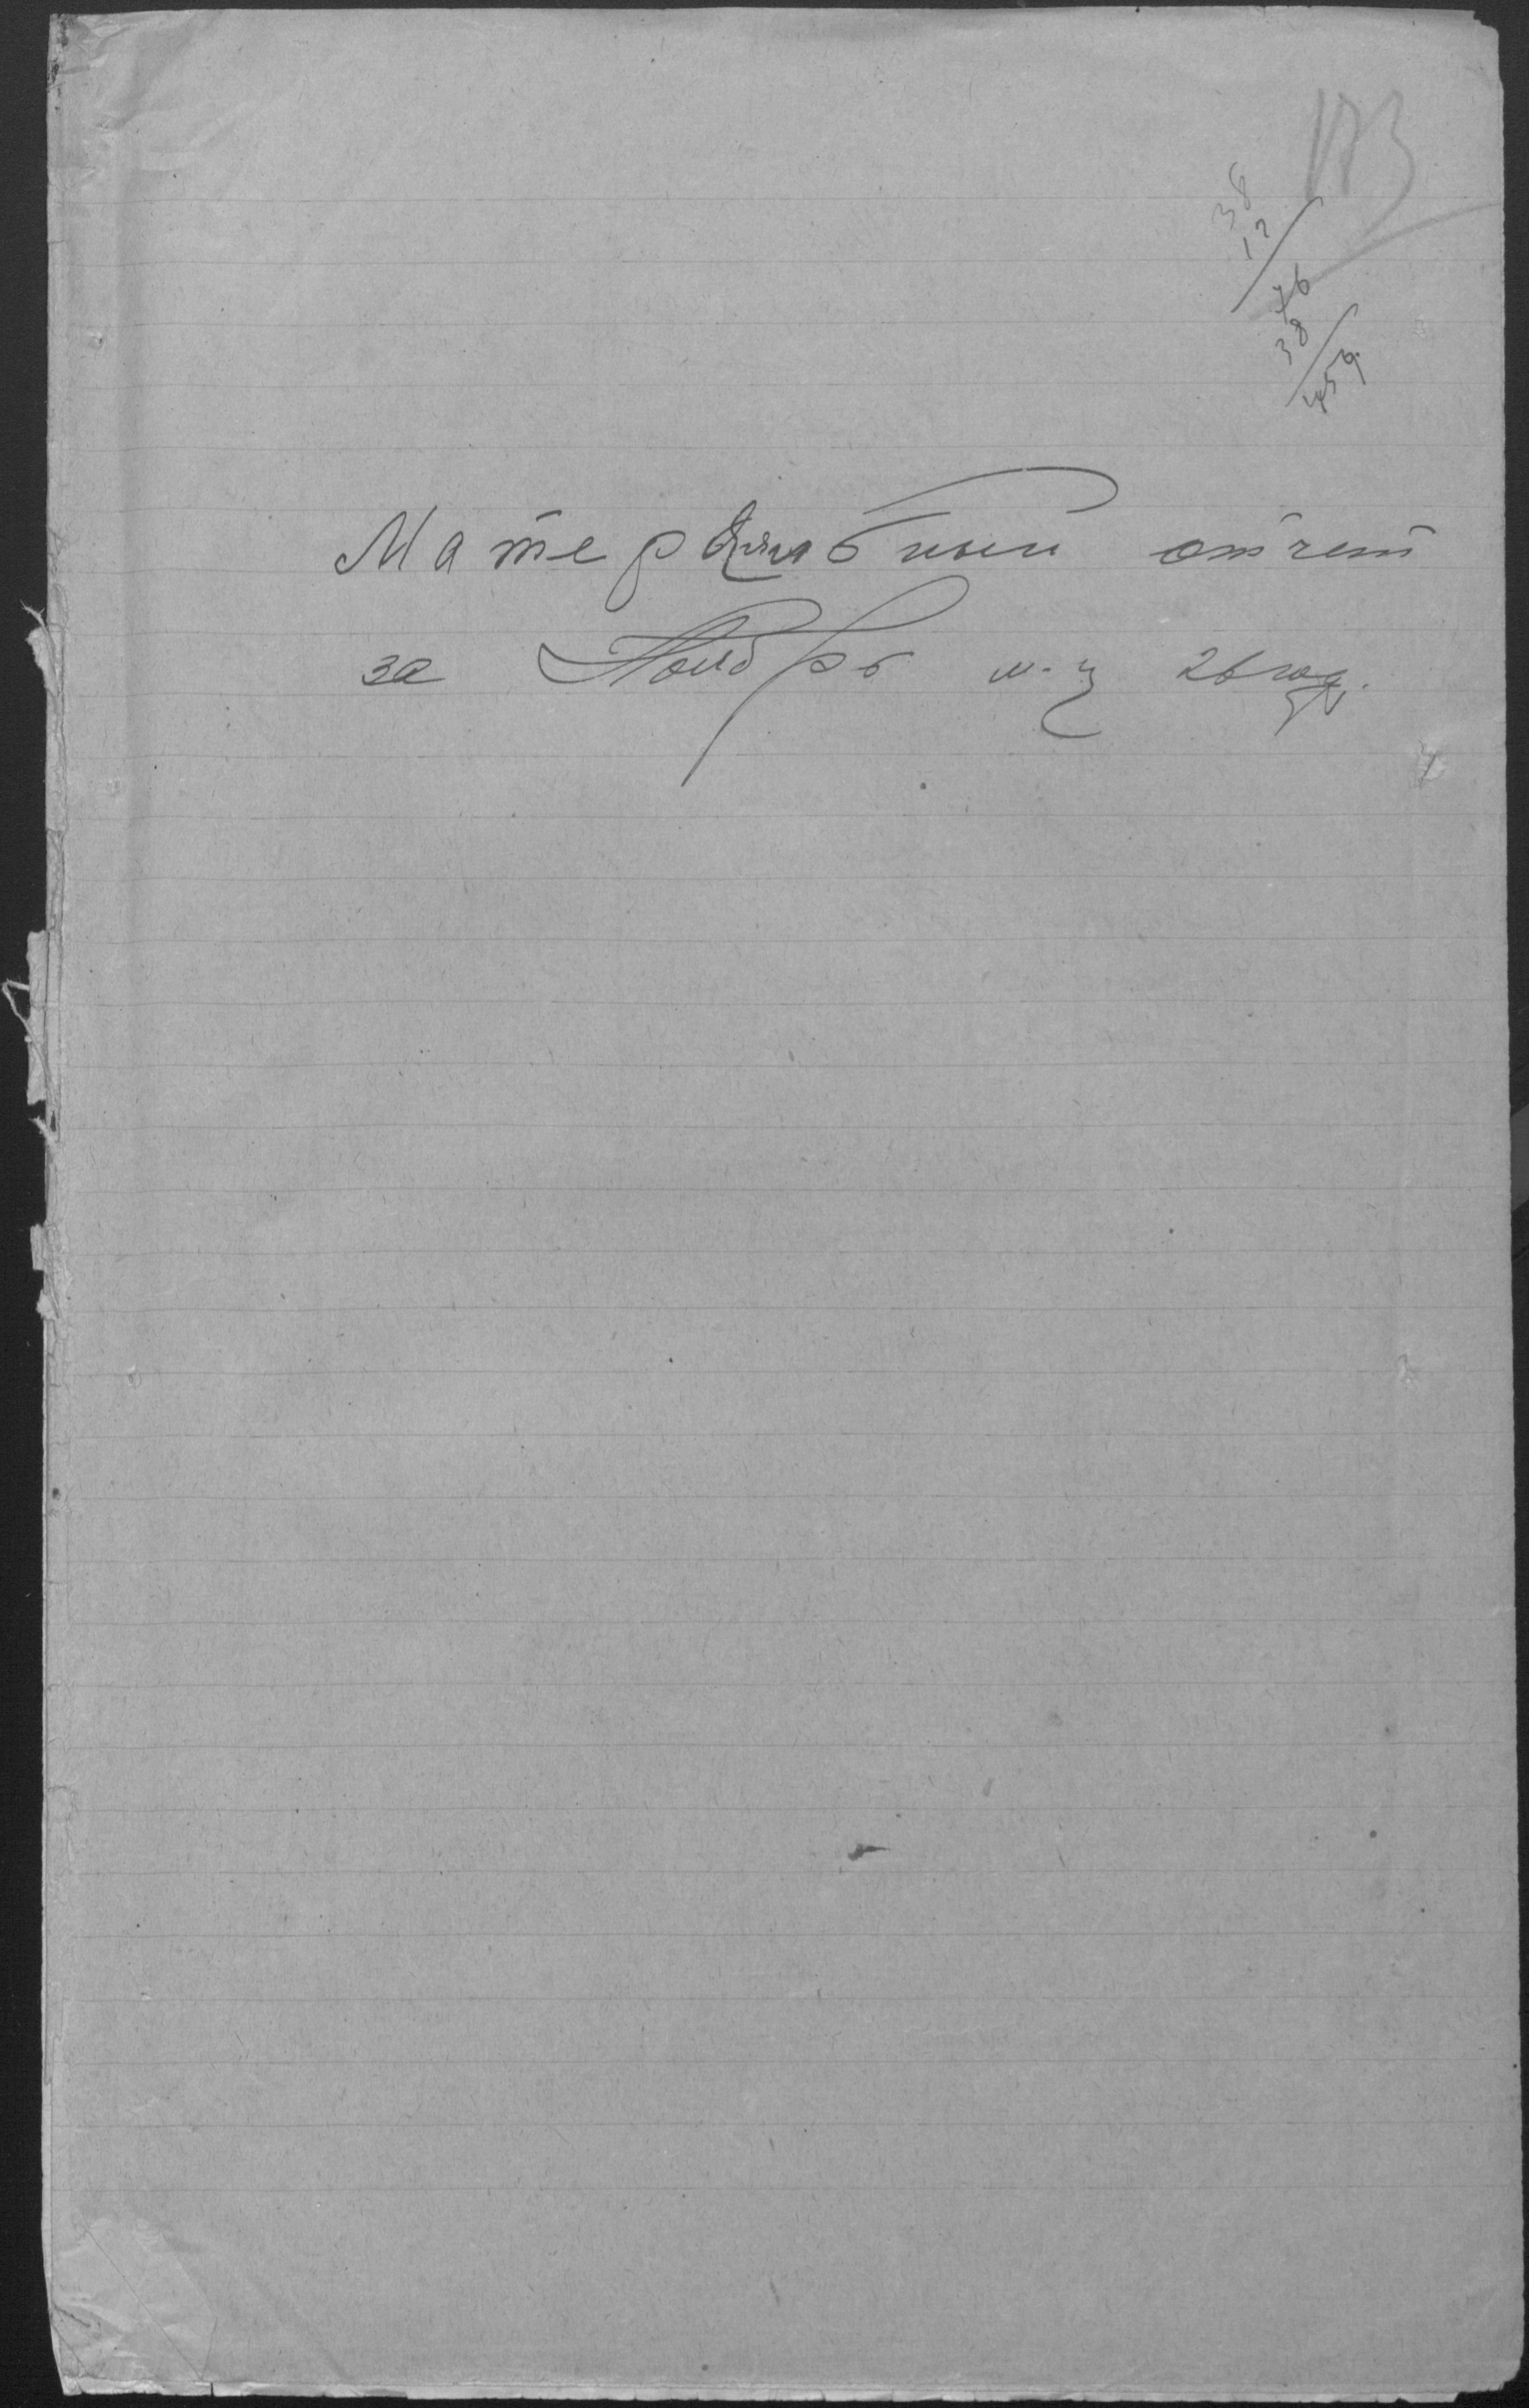 183
38
12
76
38
456
Материальный отчет
за Ноябрь м-ц 26 год.